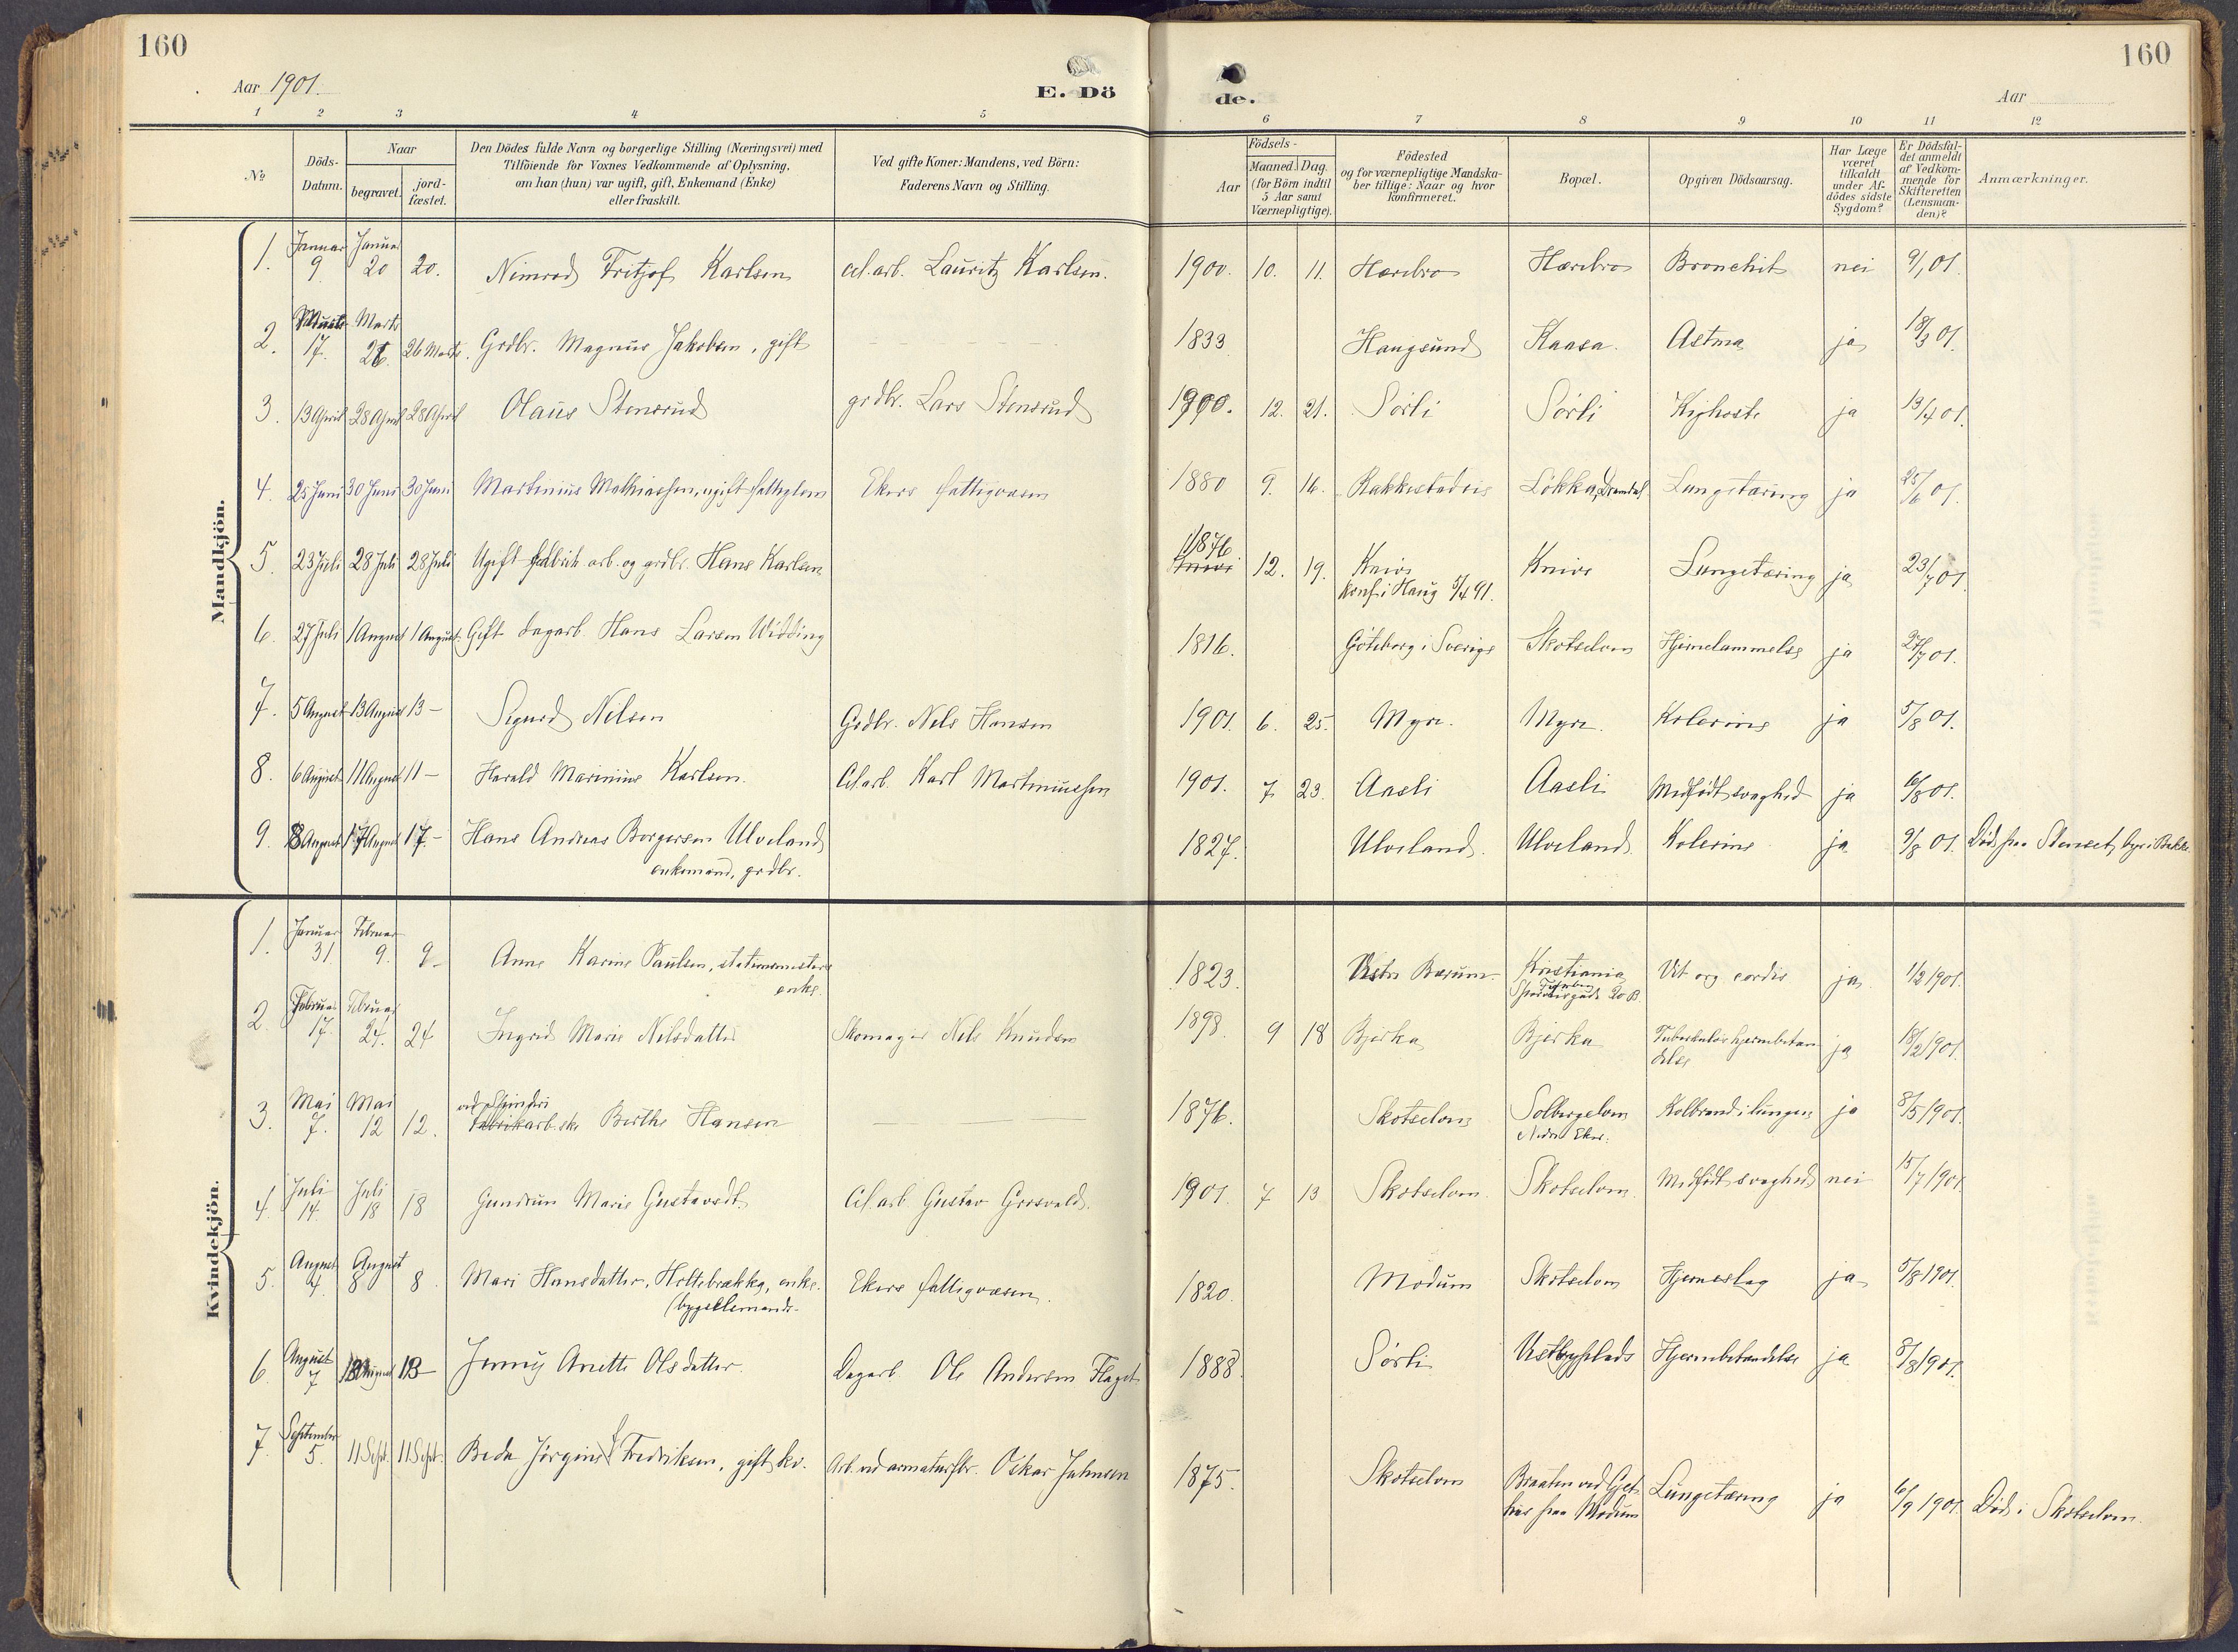 160
160
Aar 1901.
E. Dö
de.
Aar
1 2 3 4 5 6 7 8 9 10 11 12
No
Döds-Datum.
Naar
begravet.
jord-fæstet.
Den Dödes fulde Navn og borgerlige Stilling (Næringsvei) med
Tilföiende for Voxnes Vedkommende af Oplysning,
om han (hun) var ugift, gift, Enkemand (Enke)
eller fraskilt.
Ved gifte Koner: Mandens, ved Börn:
Faderens Navn og Stilling.
Födsels-
Aar
Maaned. Dag.
(for Börn indtil
5 Aar samt
Værnepligtige).
Födested
og for værnepligtige Mandska-
ber tillige: Naar og hvor
konfirmeret.
Bopæl.
Opgiven Dödsaarsag.
Har Læge
været
tilkaldt
under Af-
dödes sidste
Sygdom?
Er Dödsfal-
det anmeldt
af Vedkom-
mende for
Skifteretten
(Lensman-
den)?
Anmærkninger.
Mandkjön.
1. Januar 9 Januar 20 20. Nimrod Fritjof Karlsen cel.arb. Lauritz Karlsen. 1900. 10. 11. Hærebro Hærebro Bronchit nei 9/1 01.
2. Marts 17. Marts 26. 26 Marts. Grdbr. Magnus Jakobsen, gift 1833 Haugsund Kaasa. Astma ja 18/3 01.
3. 13 April 28 April 28 April Olaus Stensrud grdbr. Lars Stensrud 1900. 12. 21. Sörli Sörli Kighoste ja 13/4 01.
4. 25 Juni 30 Juni 30 Juni Martinius Mathiassen, ugift fattiglem Ekers fattigvæsen 1880 9. 16. Rakkestadeie Lökka, Lungetæring ja 25/6 01.
5. 23 Juli 28 Juli 28 Juli Ugift fabrik arb. og grdbr. Hans Karlsen 1876 12. 19. Knive Knive Lungetæring ja 23/7 01.
Konf. i Haug 5/4 91.
6. 27 Juli 1 August 1 August. Gift dagarb. Hans Larsen Widding 1816. Göteborg i Sverige Skotselven Hjernelammelse ja 27/7 01.
7. 5 August 13 August 13 – Sigurd Nilsen Grdbr. Nels Hansen 1901. 6. 25. Myre. Myre. Kolerine ja 5/8 01.
8. 6 August 11 August 11 – Harald Marinius Karlsen. Cel.arb. Karl Martiniussen 1901. 7 23. Aasli Aasli Medfödt svaghed ja 6/8 01.
9. 8 August 17 August 17. – Hans Andreas Borgersen Ulveland 1827. Ulveland. Ulveland. Kolerine ja 9/8 01. Död paa Stenset,
enkemand, grdbr.
Kvindekjön.
1. Januar 31 Februar 9. 9 – Anne Karine Paulsen, stationsmesters 1823. Vestre Bærum Kristiania Vit org cordis ja 1/2 1901.
enke. 20 B.
2. Februar 17. Februar 24. 24 Ingrid Marie Nilsdatter Skomager Nils Knudsen 1898. 9 18 Bjerka Bjerka Tuberkulös hjernebetæn ja 18/2 1901.
delse
3. Mai 7. Mai 12 12. ved Spinderi Berthe Hansen 1876. Skotselven Solbergelven Koldbrand i lungen ja 8/5 1901.
Nedre Eker.
4. Juli 14. Juli 18 18 Gundrun Marie Gustavsdt. Cel.arb. Gustav 1901. 7 13 Skotselven. Skotselven. Medfödt svaghed nei 15/7 1901
5. August 4. August 8 8. Mari Hansdatter, Holtebrækka, enke. Ekers fattigvæsen. 1820. Modum Skotselven Hjerneslag ja 5/8 1901.
6. August 7 13 August 13 – Jenny Anette Olsdatter. Dagarb. Ole Andersen Flaget 1888. Sörli Hjernebetændelse ja 8/8 1901.
7. September 5. 11 Sept. 11 Sept. Beda Jörgine Fredriksen, gift kv. Arb. ved armaturfbr. Oskar Johnsen 1875. Skotselven Braaten ved Gjet- Lungetæring ja 6/9 1901. Död i Skotselven.
hus paa Modum